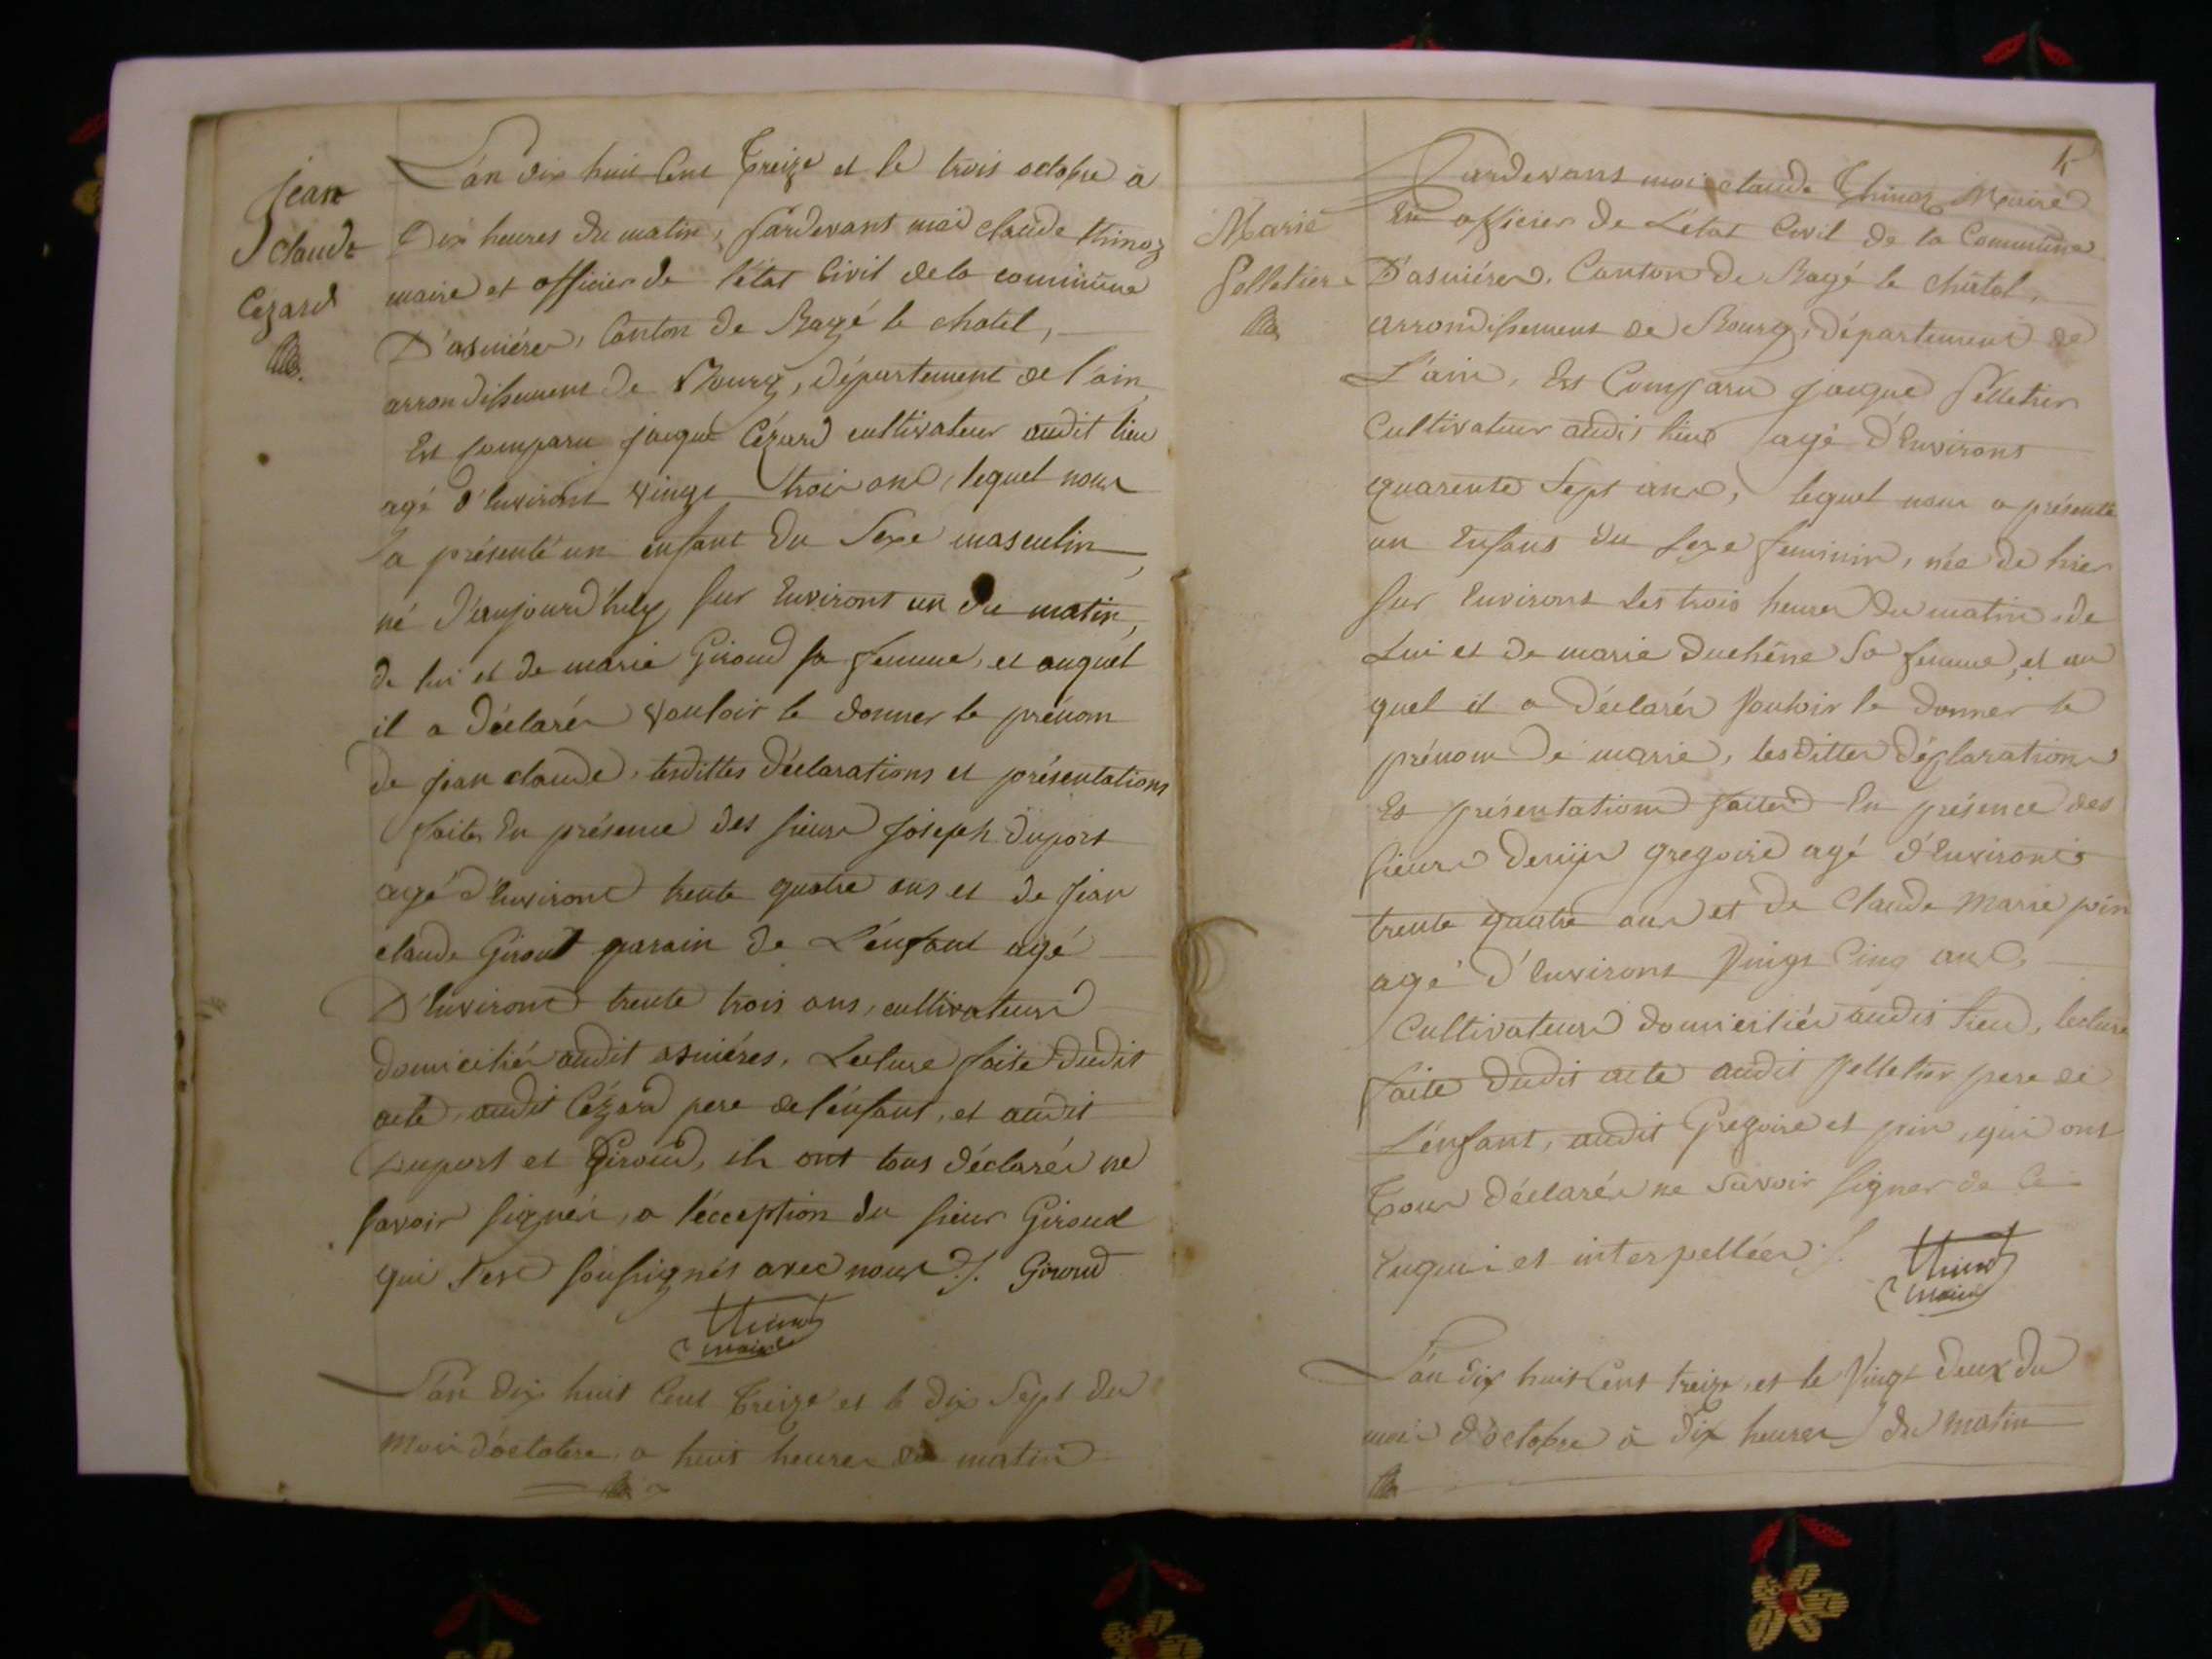 Jean
Claude
Cézard
L'an dix huit Cent Treize et le trois octobre à
Dix heures du matin, Pardevant moi claude thinoz
maire et officier de l'état Civil de la commune
D'asnières, Canton de Bagé le chatel,
arrondissement de Bourg, département de l'ain
Est Comparu jaque Cézard cultivateur audit lieu
agé d'Environt vingt trois ans, lequel nous
a présenté un enfant du Sexe masculin,
né d'aujourd'huy sur Environt un du matin,
de lui et de marie Giroud sa femme, et auquel
il a déclarés vouloir le donner le prénom
de jean claude, lesdittes déclarations et présentations
faites En présence des sieurs joseph Duport
agé d'Environt trente quatre ans et de jean
claude Giroud parain de L'énfant agé
D'Environt trente trois ans, cultivateurs
domiciliés audit asniéres, Lecture faite dudit
acte, audit Cézard pere de l'énfant, et audit
Duport et Giroud, ils ont tous déclarés ne
savoir signér, a l'écception du sieur Giroud
qui s'est soussignés avec nous ./. Giroud
Thinoz
maire
L'an dix huit Cent treize et le dix Sept du
Mois d'octobre, a huit heures du matin
5
Marie
Pelletier
Pardevant moi claude Thinoz Maire
En officier de L'état Civil de la Commune
D'asniéres, Canton de Bagé le châtel,
arrondissement de Bourg, département de
L'ain, Est Comparu jaque Pelletier
Cultivateur audit lieu agé d'Environs
quarente Sept ans, lequel nous a présenté
un Enfant du sexe feminin, née de hier
sur Environt les trois heures du matin, de
Lui et de marie Duchêne Sa femme, et au
quel il a déclarés vouloir le donner le
prénom de marie, lesdittes déclarations
Et présentations faites En présence des
sieurs Denijs gregoire agé d'Environts
trente quatre ans et de Claude Marie pin
agé d'Environs vingt Cinq ans,
Cultivateurs domiciliés audit lieu, lecture
faite dudit acte audit pelletier pere de
L'énfant, audit Gregoire et pin, qui ont
Tous déclarés ne savoir signer de Ce
Enquis et interpellées ./.
Thinoz
maire
L'an dix huit Cent treize, et le vingt deux du
mois d'octobre à dix heures du Matin